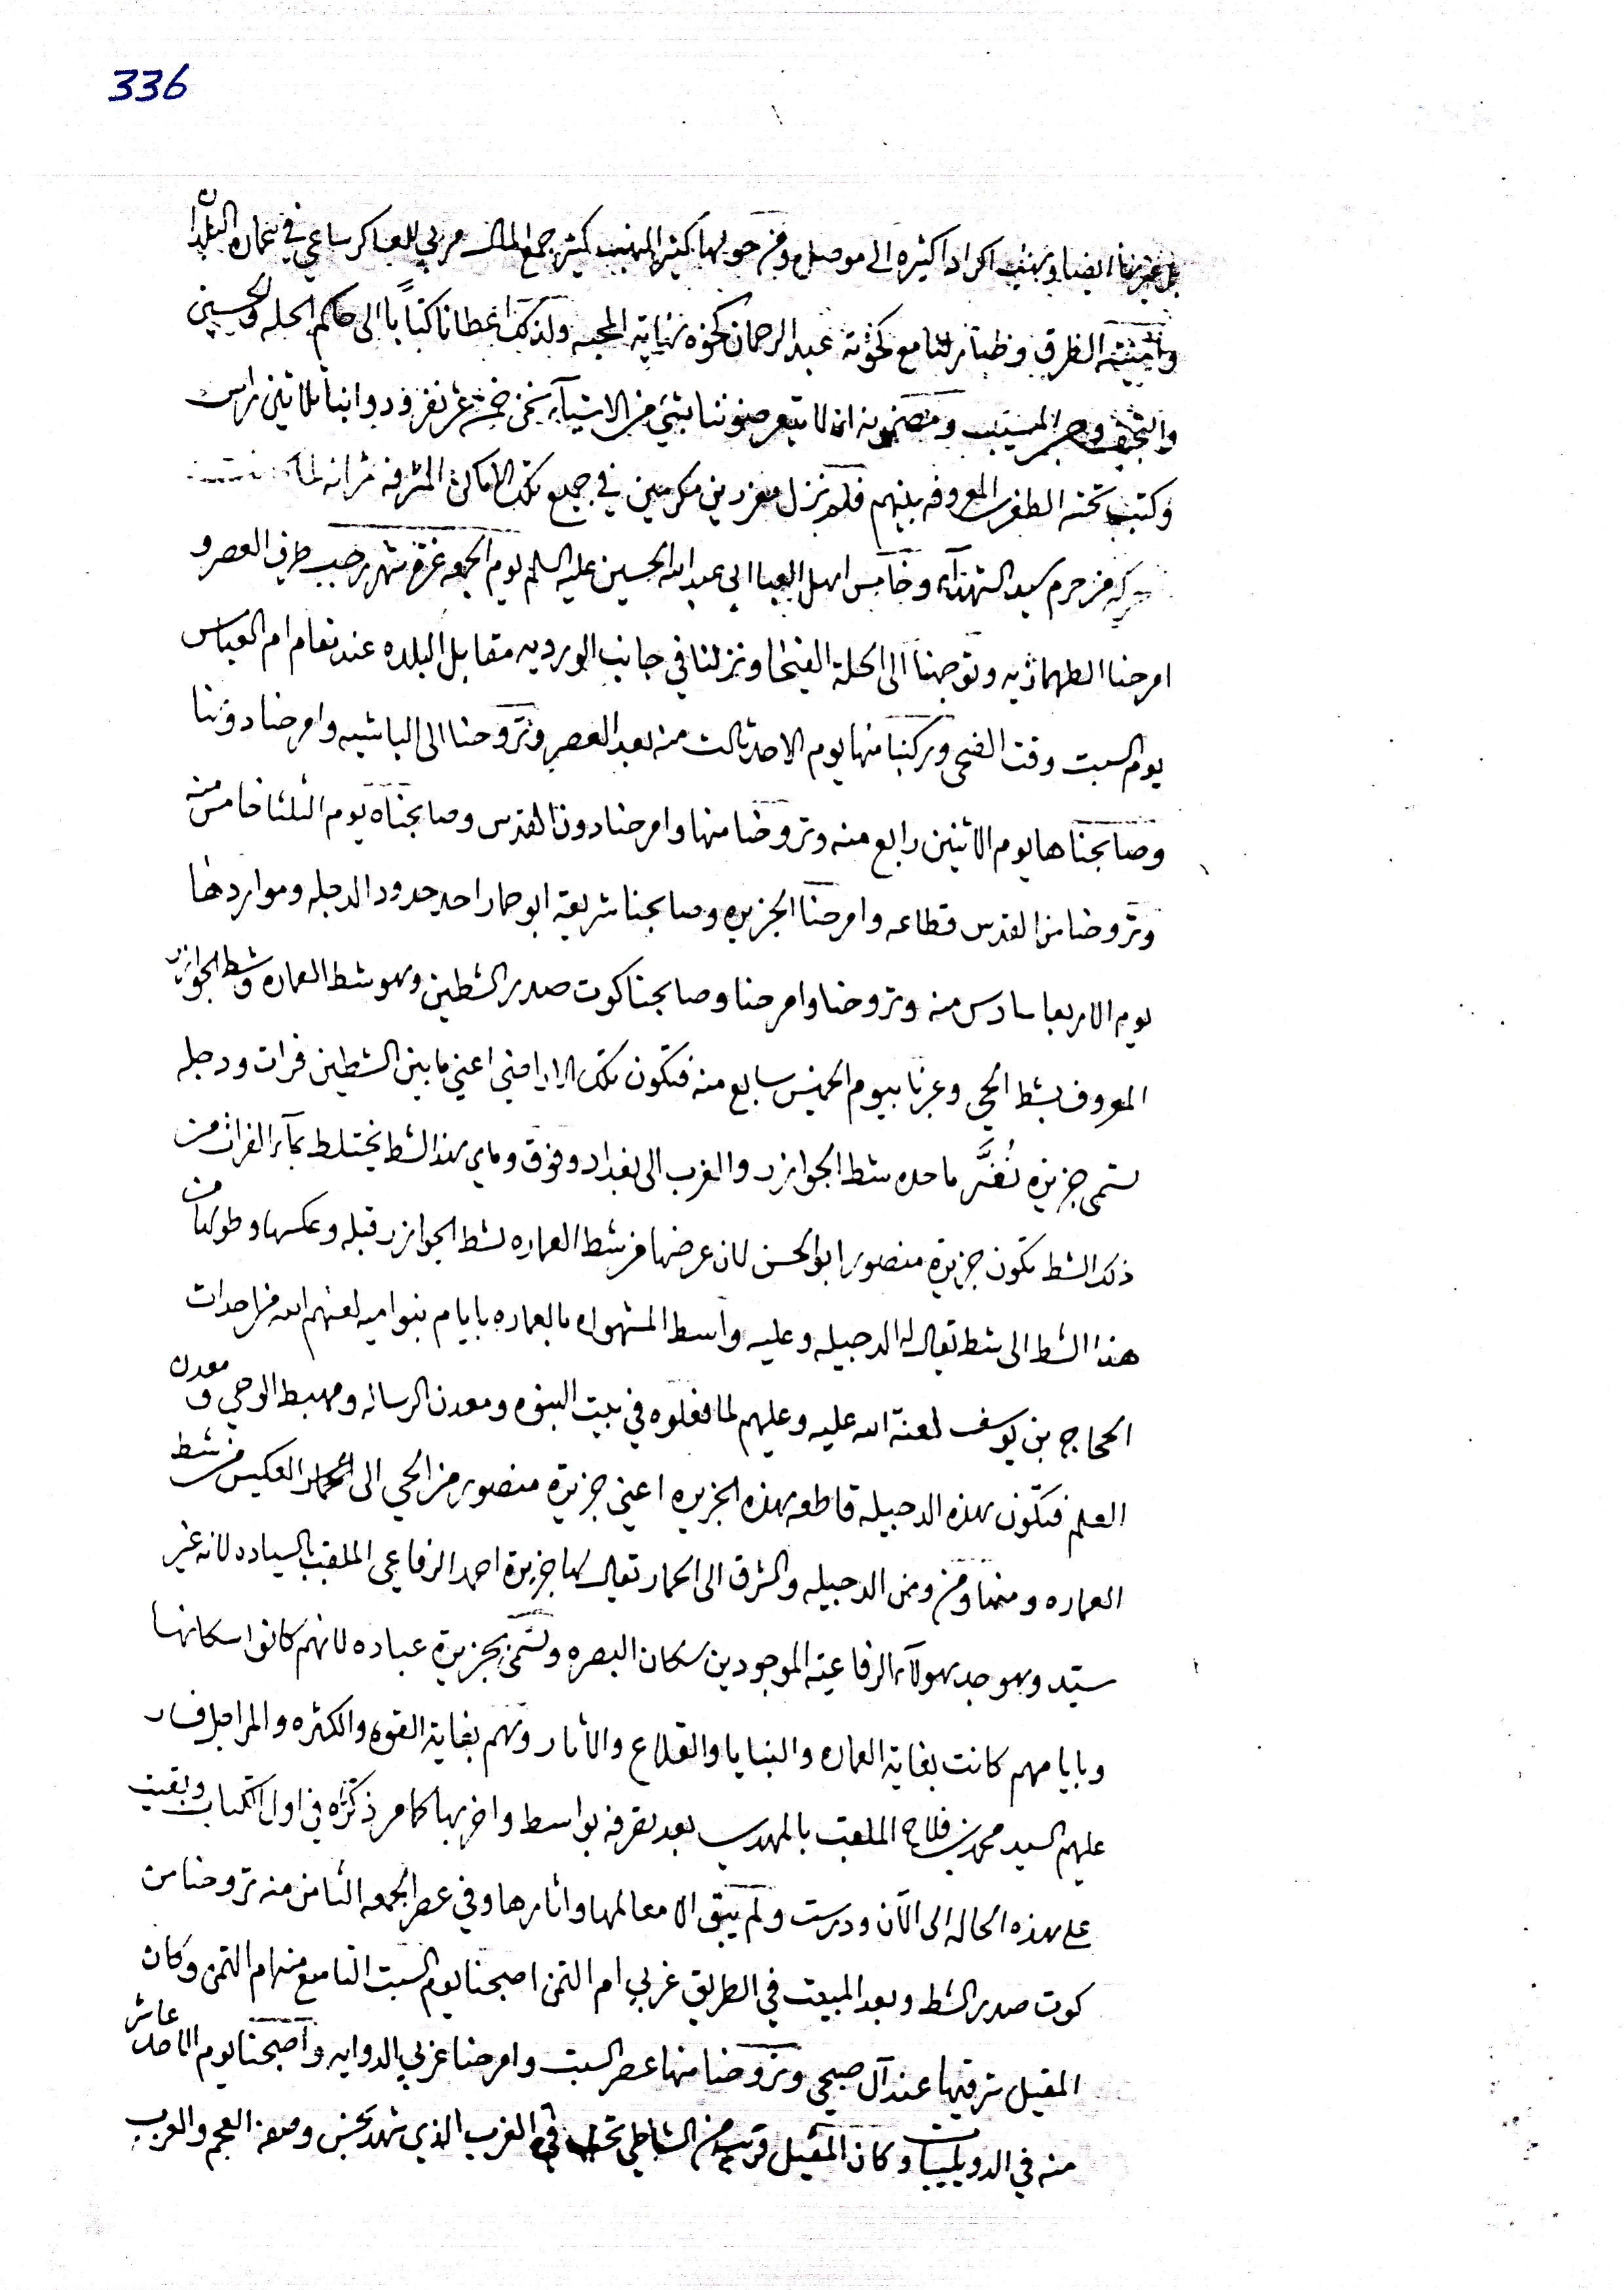 336
بل غيرها ايضا ونهب اكراد كثيره الى موصل ومن حولها كثير المهيب كثير جمع المال مربي للعساكر ساعي في عماره البلدان
وامنية الطرق وظيا لنا مع كخوته عبد الرحمان كخوه نهاية المحبه ولذلك اعطانا كتاباً الى حاكم الحله والحسين
والنجف وجسر المسيب ومضمونه ان لا يتعرضوننا بشئ من الاشيآء نحن خمسة عشر نفر ودوابنا ثلاثين راس
وكتب تحته الطغرى المعروفه بينهم فلم نزل معززين مكرمين في جميع تلك الاماكن المشرفه ثم انه لما
من حرم سيد الشهدآء وخامس اهل العبا ابي عبد الله الحسين عليه السلم يوم الجمعه غرة شهر رجب طرفي العصر و
امرحنا الطهمازيه وتوجهنا الى الحلة الفيحا ونزلنا في جانب الورديه مقابل البلده عند مقام ام العباس
يوم السبت وقت الضحى وركبنا منها يوم الاحد ثالث منه بعد العصر وتروحنا الى الباشيه وامرحنا دونها
وصابحناها يوم الاثنين رابع منه وتروحنا منها وامرحنا دون القدس وصابحناه يوم الثلثا خامس منه
وتروحنا من القدس قطاعه وامرحنا الجزيره وصابحنا شريعة ابو حمار احد حدود الدجله ومواردها
يوم الاربعا سادس منه وتروحنا وامرحنا وصابحنا كوت صدر الشطين وهو شط العماره وشط الجوازر
المعروف بشط الحي وعبرنا بيوم الخميس سابع منه فتكون تلك الاراضي اعني ما بين الشطين فرات ودجله
تسمى جزيرة ما حده شط الجوازر والغرب الى بغداد وفوق وماي هذا الشط يختلط بمآء الفرات من
ذلك الشط تكون جزيرة منصور ابو الحسن لان عرضها من شط العماره لشط الجوازر قبله وعكسها وطولها من
هذا الشط الى شط تعال له الدجيله وعليه واسط المشهوره بالعماره بايام بنو اميه لعنهم الله من احداث
الحجاج بن يوسف لعنة الله عليه وعليهم لما فعلوه في بيت النبوه ومعدن الرساله ومهبط الوحي ومعدن
العلم فتكون هذه الدجيله قاطعه هذه الجزيره اعني جزيرة منصور من الحي الى العكس من شط
العماره ومنها ومن الدجيله والشرق الى الحمار تعال لها جزيرة احمد الرفاعي الملقب بالسياده لانه غير
سيد وهو جد هولآء الرفاعيه الموجودين سكان البصره وتسمى بجزيرة عباده لانهم كانوا سكانها
وبايامهم كانت بغاية العماره والبنايا والقلاع والاثار وهم بغاية القوه والكثره والمراجل فسار
عليهم السيد محمد بن فلاح الملقب بالمهدي بعد تصرفه بواسط واخربها كما مر ذكره في اول الكتاب وبقيت
على هذه الحاله الى الآن ودرست ولم يبق الا معالمها واثارها وفي عصر الجمعه الثامن منه تروحنا من
كوت صدر الشط وبعد المبيت في الطريق غربي ام التمن اصبحنا يوم السبت التاسع منه ام التمن وكان
المقيل شرقيها عند آل صبحي وتروحنا منها عصر السبت وامرحنا غربي الدوايه واصبحنا يوم الاحد عاشر
منه في الدويليبات وكان المقيل قريب من الشاطي الغرب الذي شهد بحسن وصفه العجم والعرب